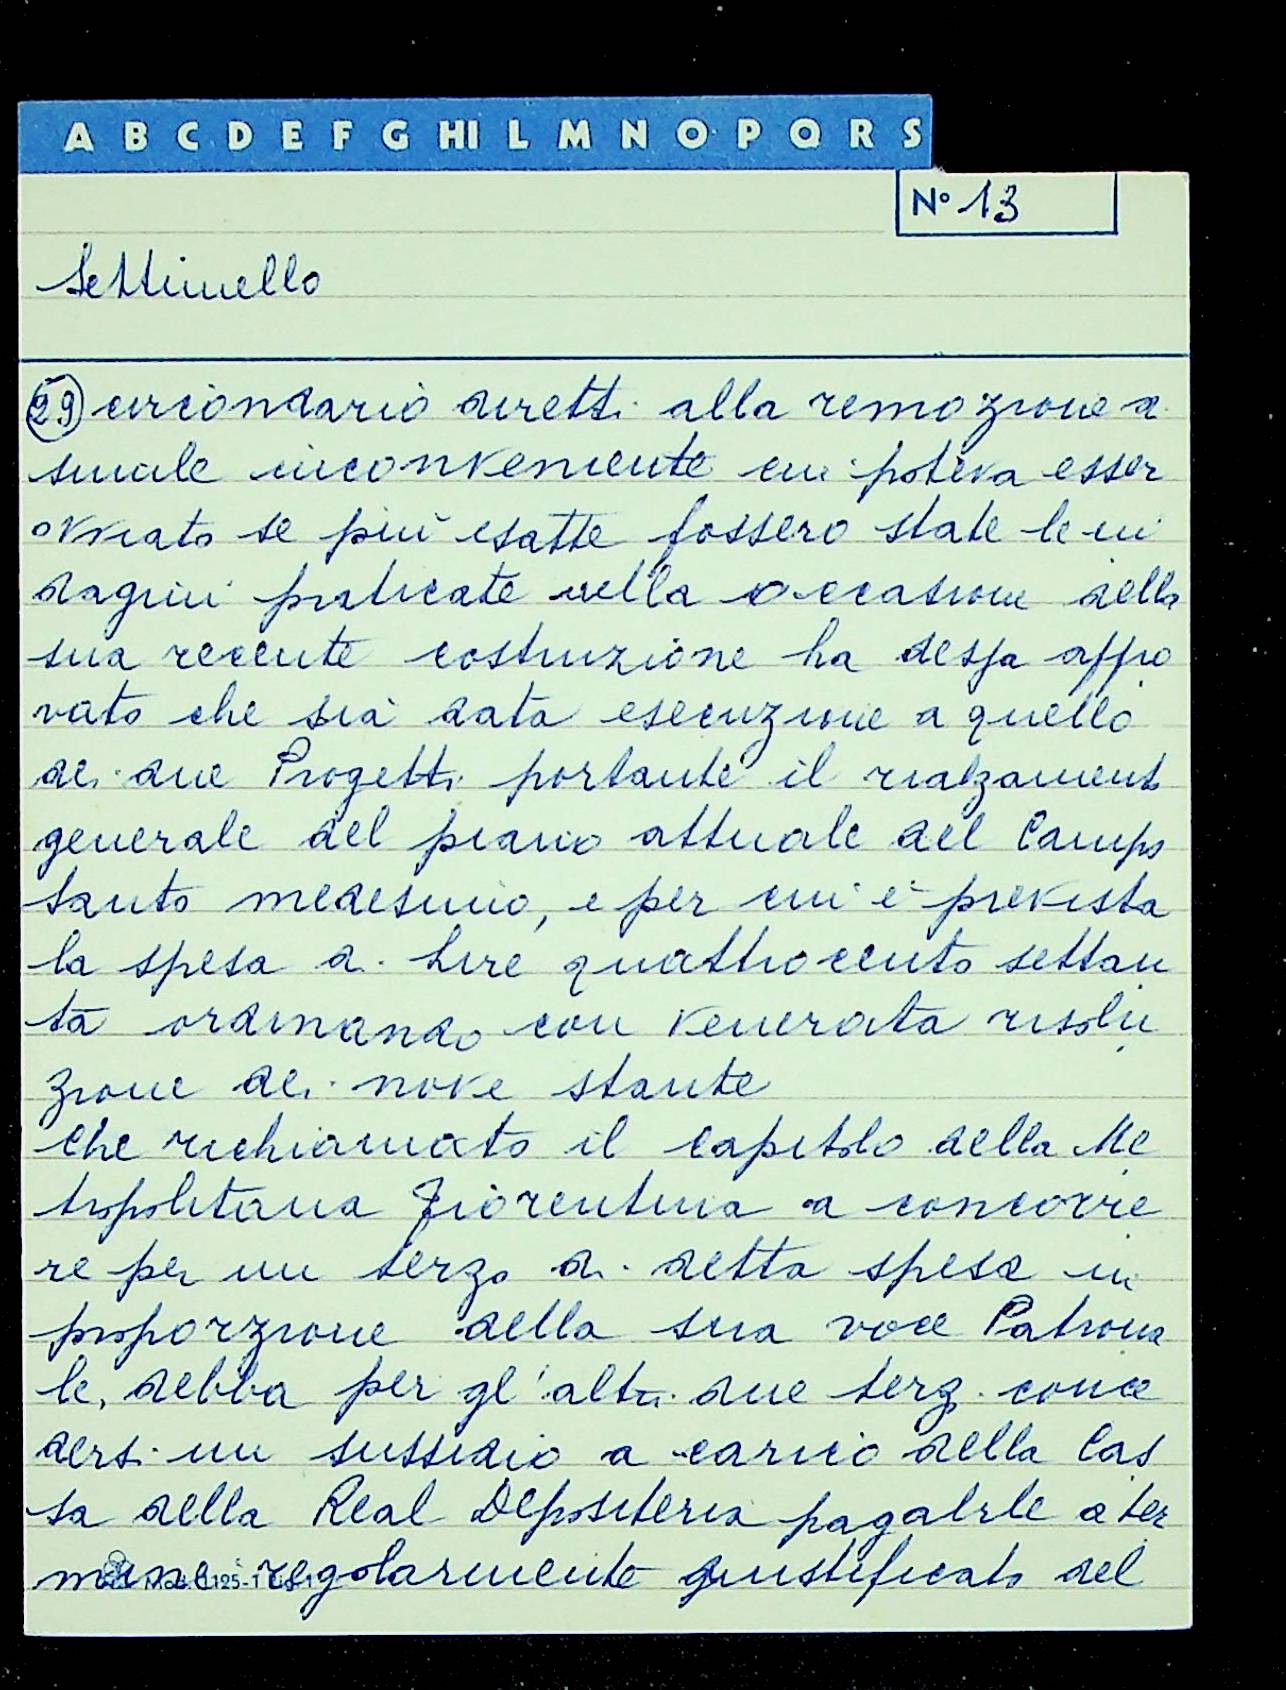 A B C D E F G HI L M N O P Q R S
N° 13
Settimello
29 circondario diretti alla remozione di
simile inconveniente cui poteva esser
ovviato se più esatte fossero state le in
dagini praticate nella occasione della
sua recente costruzione ha appro
vato che sia data esecuzione a quello
dei due Progetti portante il rialzamento
generale del piano attuale del Campo
santo medesimo, e per cui è prevista
la spesa di Lire quattrocento settan
ta ordinando con venerata risolu
zione dei nove stante
che richiamato il capitolo della Me
tropolitana Fiorentina a concorre
re per un terzo di detta spesa in
proporzione della sua voce Patrona
le, debba per gl'altri due terzi conce
dersi un sussidio a carico della Cas
sa della Real Depositeria pagabile a ter
mine regolarmente giustificato del